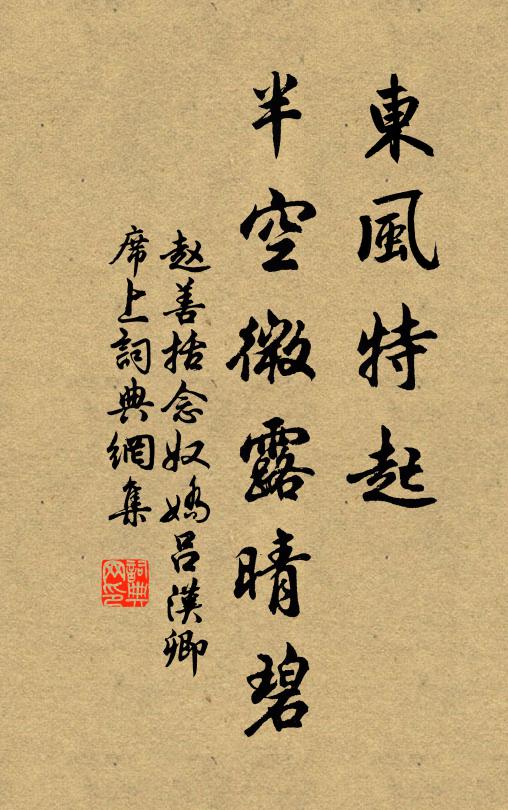 東風特起
半空微露晴碧
赵善括念奴嬌吕漢卿
席上詞典網集
詞典
网印